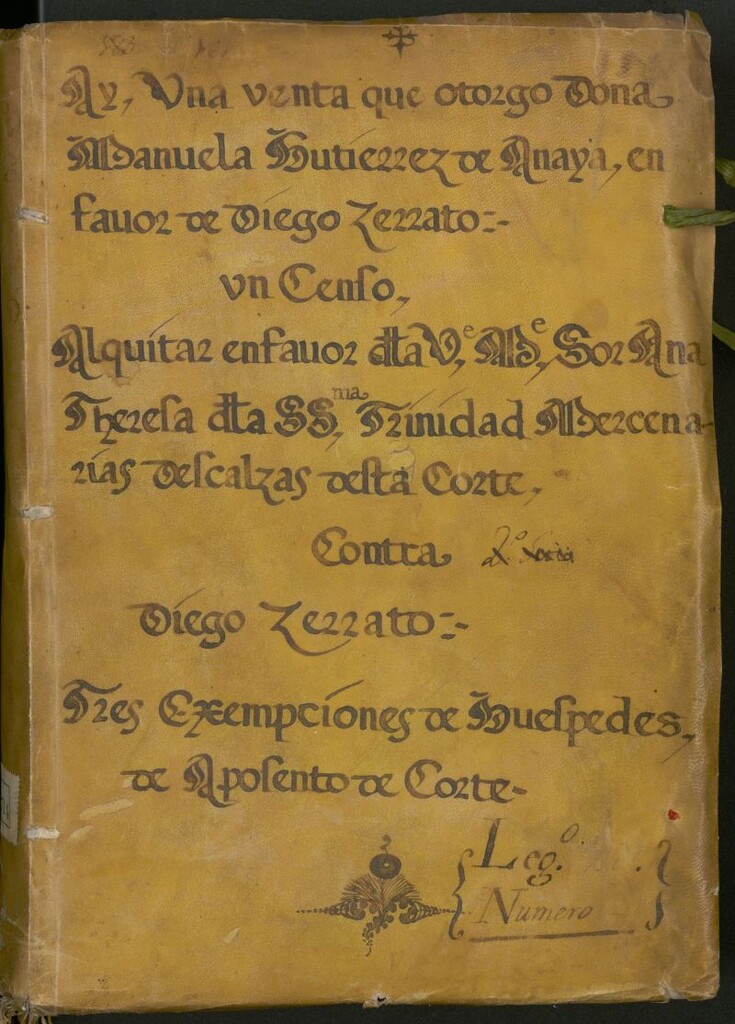 ✠
Ay, Vna venta que otorgo Dona
Manuela Gutierrez de Anaya, en
fauor de Diego Zerrato:-
vn Censo,
Alquitar enfauor dlla Ve. Me. Sor Ana
Theresa dlla SSma. Trinidad Mercena-
rias Descalzas desta Corte,
Contra
Diego Zerrato:-
Tres Exempciones de Huespedes,
de Aposento de Corte-
Lego.
Numero